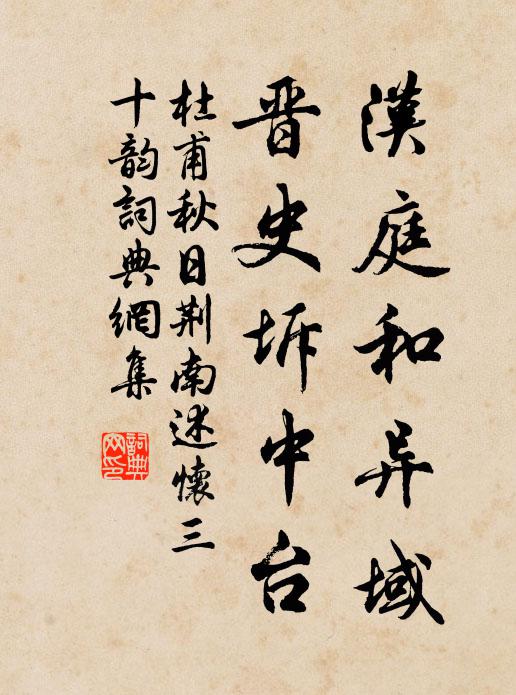 漢庭和异域
晋史坼中台
杜甫秋日荆南述懷三
十韵詞典網集
詞典網印